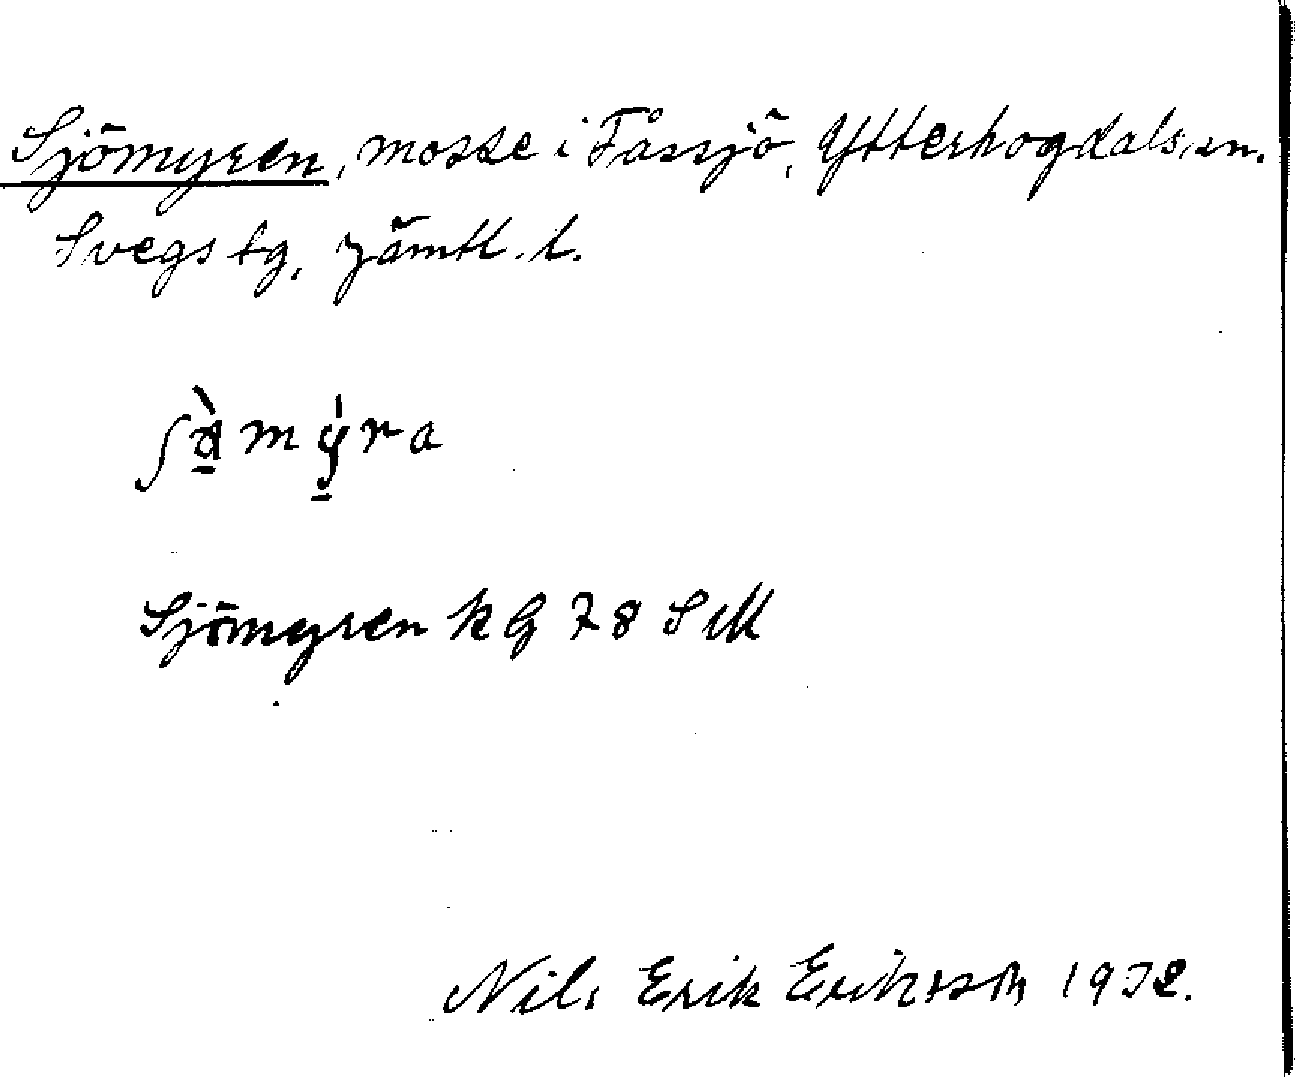 Sjömyren, mosse i Fåssjö, Ytterhogdals sn.
Svegs tg, Jämtl. l.
Sjömyren kG 78 SM
Nils Erik Eriksson 1932.